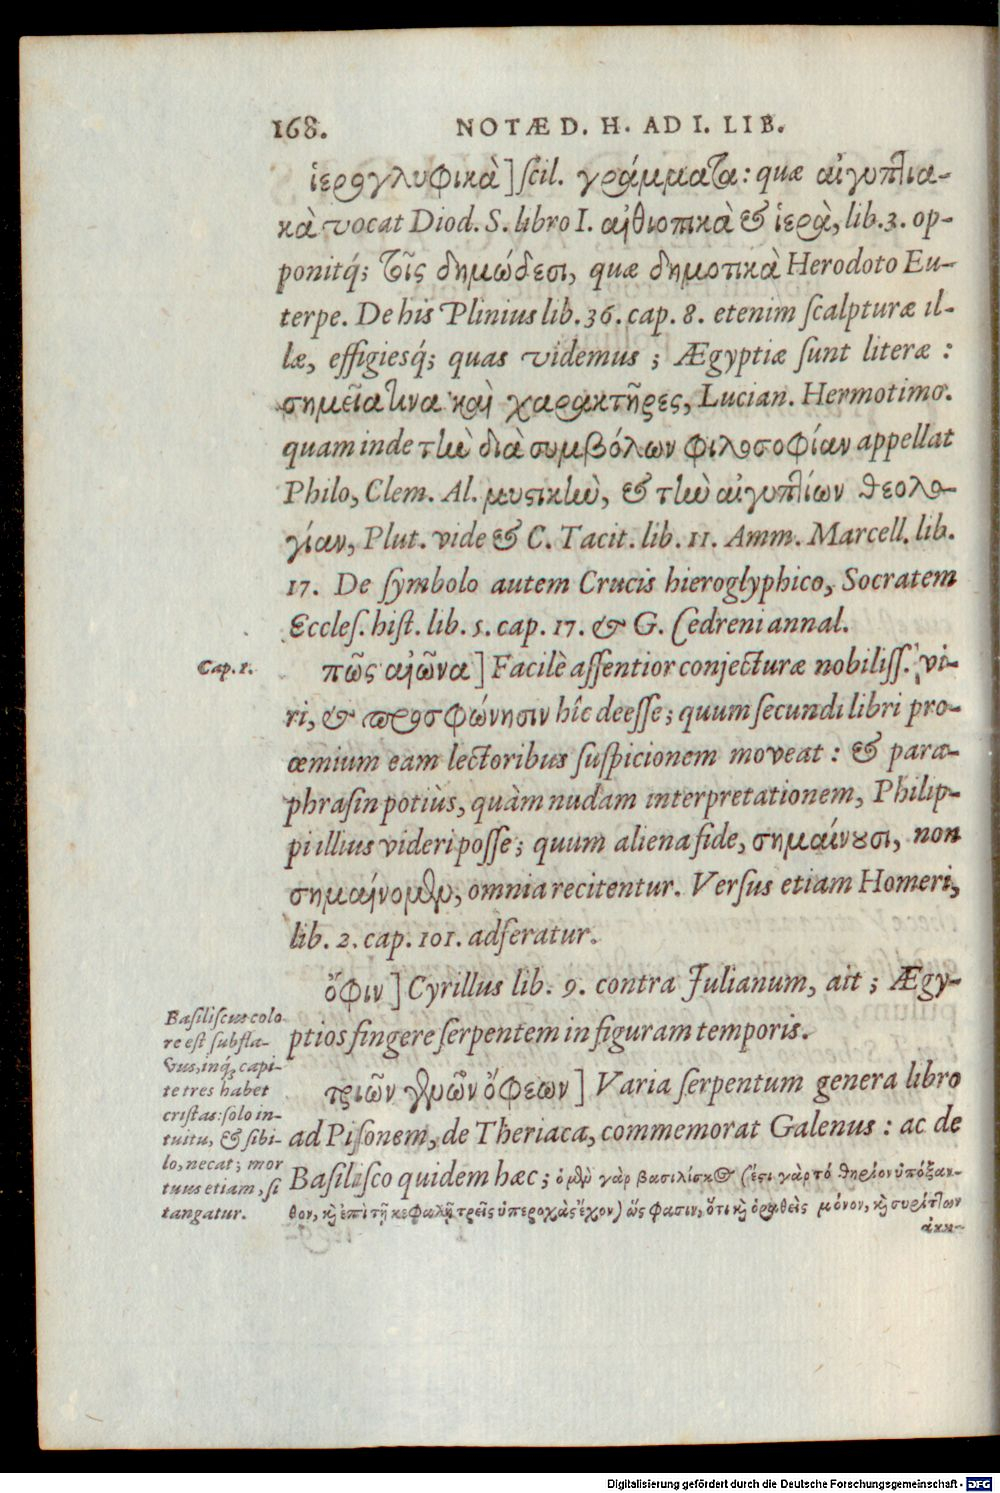 168. NOTÆ D. H. AD I. LIB.
ἱερογλυφικὰ] ſcil. γράμματα: quæ αἰγυπτια-
κὰ vocat Diod. S. libro I. αἰθιοπικὰ & ἱερὰ, lib. 3. op-
ponitq́; τοῖς δημώδεσι, quæ δημοτικὰ Herodoto Eu-
terpe. De his Plinius lib. 36. cap. 8. etenim ſcalpturæ il-
læ, effigiesq́; quas videmus ; Ægyptiæ ſunt literæ :
σημεῖά τινα καὶ χαρακτῆρες, Lucian. Hermotimo.
quam inde τὴν διὰ συμβόλων φιλοσοφίαν appellat
Philo, Clem. Al. μυστικὴν, & τὴν αἰγυπτίων θεολο-
γίαν, Plut. vide & C. Tacit. lib. 11. Amm. Marcell. lib.
17. De ſymbolo autem Crucis hieroglyphico, Socratem
Eccleſ. hiſt. lib. 5. cap. 17. & G. Cedreni annal.
Cap. 1.
πῶς αἰῶνα] Facilè aſſentior conjecturæ nobiliſſ. vi-
ri, & προσφώνησιν hîc deeſſe; quum ſecundi libri pro-
œmium eam lectoribus ſuſpicionem moveat : & para-
phraſin potiùs, quàm nudam interpretationem, Philip-
pi illius videri poſſe; quum aliena fide, σημαίνουσι, non
σημαίνομεν, omnia recitentur. Verſus etiam Homeri,
lib. 2. cap. 101. adferatur.
ὄφιν] Cyrillus lib. 9. contra Julianum, ait ; Ægy-
ptios fingere ſerpentem in figuram temporis.
τριῶν γενῶν ὄφεων] Varia ſerpentum genera libro
ad Piſonem, de Theriaca, commemorat Galenus : ac de
Baſiliſco quidem hæc ; ὁ μὲν γὰρ βασιλίσκος (ἔστι γὰρ τὸ θηρίον ὑπόξαν-
θον, καὶ ἐπὶ τῇ κεφαλῇ τρεῖς ὑπεροχὰς ἔχον) ὥς φασιν, ὅτι καὶ ὁραθεὶς μόνον, καὶ συρίττων
ἀκκ-
Baſiliſcus colo-
re eſt ſubfla-
vus, inq́, capi-
te tres habet
criſtas: ſolo in-
tuitu, & ſibi-
lo, necat; mor
tuus etiam, ſi
tangatur.
Digitalisierung gefördert durch die Deutsche Forschungsgemeinschaft - DFG